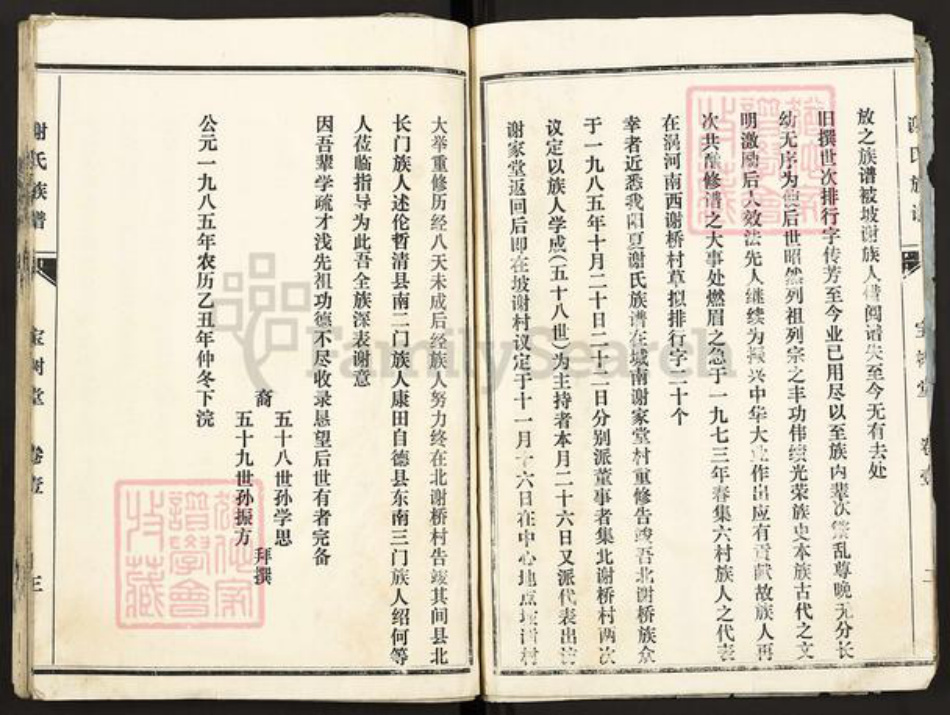 谢氏族谱
宝树堂
卷壹
放之族谱被坡谢族人借阅谱失至今无有去处
旧撰世次排行字传芳至今业已用尽以至族内辈次紊乱尊晚无分长
幼无序为使后世昭然列祖列宗之丰功伟绩光荣族史本族古代之文
明激励后人效法先人继续为振兴中华大业作出应有贡献故族人再
次共酿修谱之大事处燃眉之急于一九七三年春集六村族人之代表
在涡河南西谢桥村草拟排行字二十个
幸者近悉我阳夏谢氏族谱在城南谢家堂村重修告竣吾北谢桥族众
于一九八五年十月二十日二十二日分别派董事者集北谢桥村两次
议定以族人学成(五十八世)为主持者本月二十六日又派代表出访
谢家堂返回后即在坡谢村议定于十一月十六日在中心地点坡谢村
大举重修历经八天未成后经族人努力终在北谢桥村告竣其间县北
长门族人述伦哲清县南二门族人康田自德县东南三门族人绍何等
人莅临指导为此吾全族深表谢意
因吾辈学疏才浅先祖功德不尽收录恳望后世有者完备
裔
五十八世孙学思
五十九世孙振方
拜撰
公元一九八五年农历乙丑年仲冬下浣
谢氏族谱
宝树堂
卷壹
三
FamilySearch